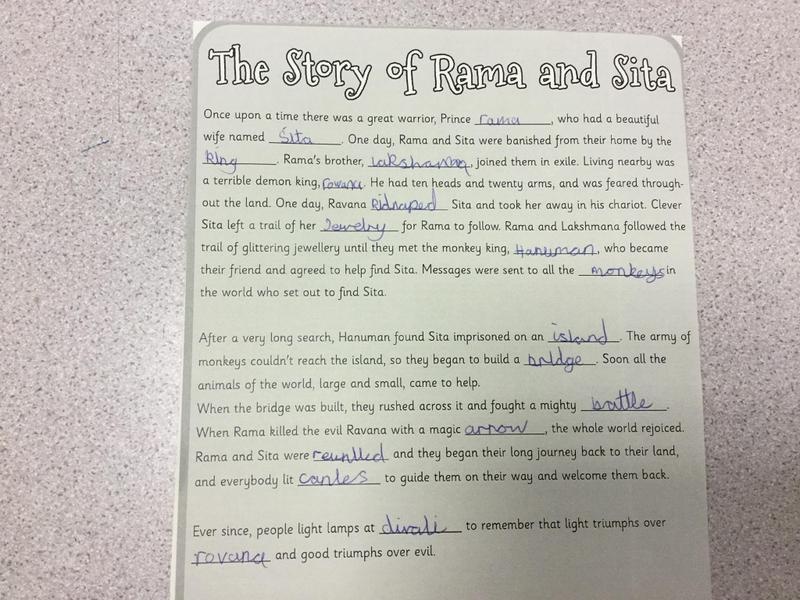 The Story of Rama and Sita
Once upon a time there was a great warrior, Prince rama, who had a beautiful
wife named Sita. One day, Rama and Sita were banished from their home by the
king. Rama's brother, lakshamna, joined them in exile. Living nearby was
a terrible demon king, rowana. He had ten heads and twenty arms, and was feared through-
out the land. One day, Ravana kidnaped Sita and took her away in his chariot. Clever
Sita left a trail of her Jewelry for Rama to follow. Rama and Lakshmana followed the
trail of glittering jewellery until they met the monkey king, Hanuman, who became
their friend and agreed to help find Sita. Messages were sent to all the monkeys in
the world who set out to find Sita.
After a very long search, Hanuman found Sita imprisoned on an island. The army of
monkeys couldn't reach the island, so they began to build a bridge. Soon all the
animals of the world, large and small, came to help.
When the bridge was built, they rushed across it and fought a mighty battle.
When Rama killed the evil Ravana with a magic arrow, the whole world rejoiced.
Rama and Sita were reunited and they began their long journey back to their land,
and everybody lit canles to guide them on their way and welcome them back.
Ever since, people light lamps at divali to remember that light triumphs over
rovana and good triumphs over evil.